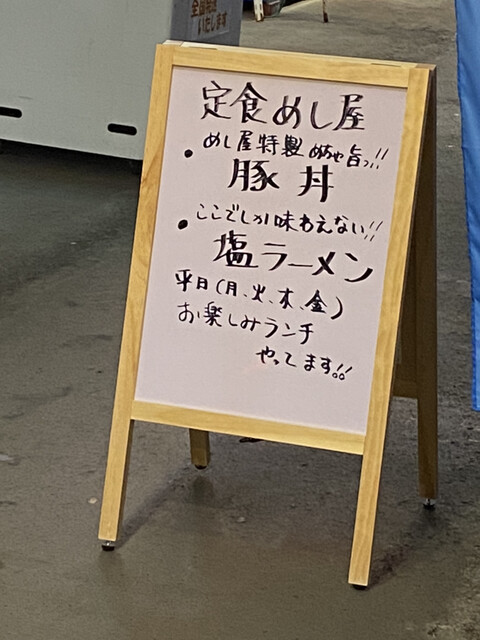 全国発送
いたします
定食めし屋
・めし屋特製めちゃ旨っ!!
豚丼
・ここでしか味わえない!!
塩ラーメン
平日(月、火、木、金)
お楽しみランチ
やってます!!